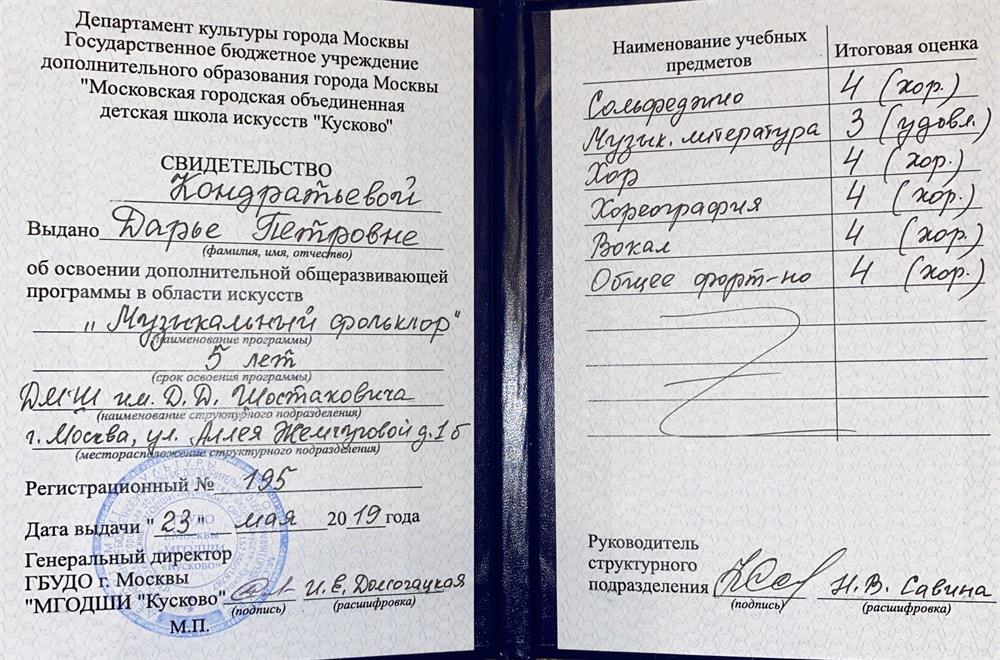 Департамент культуры города Москвы
Государственное бюджетное учреждение
дополнительного образования города Москвы
"Московская городская объединенная
детская школа искусств "Кусково"
СВИДЕТЕЛЬСТВО
Кондратьевой
Выдано Дарье Петровне
(фамилия, имя, отчество)
об освоении дополнительной общеразвивающей
программы в области искусств
„Музыкальный фольклор"
(наименование программы)
5 лет
(срок освоения программы)
ДМШ им. Д.Д. Шостаковича
(наименование структурного подразделения)
г. Москва, ул. Аллея Жемчуговой д.1б
(месторасположение структурного подразделения)
Регистрационный № 195
Дата выдачи "23" мая 2019 года
Генеральный директор
ГБУДО г. Москвы
"МГОДШИ "Кусково" И.Е. Долгогацкая
(подпись) (расшифровка)
М.П.
ГБУДО
г. Москвы
«МГОДШИ
«Кусково»
Наименование учебных предметов Итоговая оценка
Сольфеджио 4 (хор.)
Музык. литература 3 (удовл.)
Хор 4 (хор.)
Хореография 4 (хор.)
Вокал 4 (хор.)
Общее форт-но 4 (хор.)
Руководитель
структурного
подразделения Н.В. Савина
(подпись) (расшифровка)